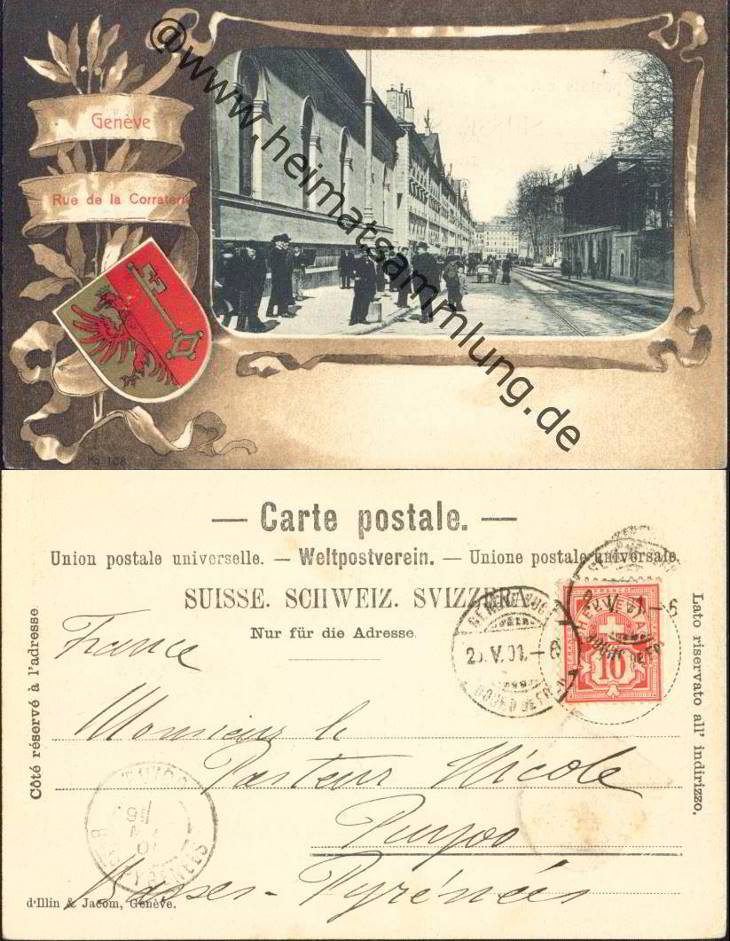 Genève
Rue de la Corraterie
No 108
@www.heimatsammlung.de
— Carte postale. —
Union postale universelle. — Weltpostverein. — Unione postale universale.
SUISSE. SCHWEIZ. SVIZZERA.
Nur für die Adresse.
Côté réservé à l'adresse
Lato riservato all' indirizzo.
HELVETIA
10
V.01.-6
France
Monsieur le
Pasteur Nicole
Puyoo
Basses-Pyrénées
d'Illin & Jacom, Genève.